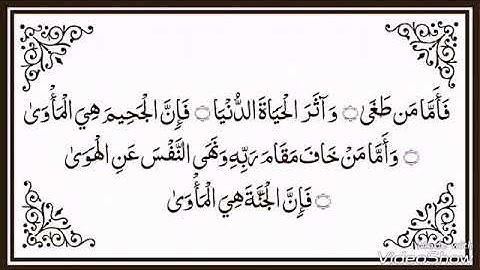 فَأَمَّا مَن طَغَىٰ ۝ وَآثَرَ الْحَيَاةَ الدُّنْيَا ۝ فَإِنَّ الْجَحِيمَ هِيَ الْمَأْوَىٰ
۝ وَأَمَّا مَنْ خَافَ مَقَامَ رَبِّهِ وَنَهَى النَّفْسَ عَنِ الْهَوَىٰ
۝ فَإِنَّ الْجَنَّةَ هِيَ الْمَأْوَىٰ
Made with
VideoShow